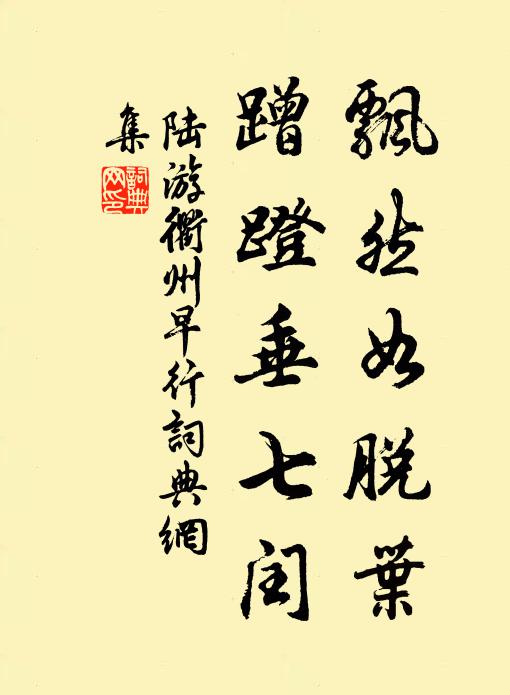 飄然如脫葉
蹭蹬垂七閏
陸游衢州早行詞典網
集
詞典网印